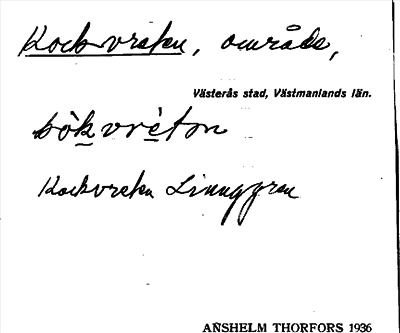 Kockvreten, område,
Västerås stad, Västmanlands län.
kòkvrèton
Kockvreten
ANSHELM THORFORS 1936